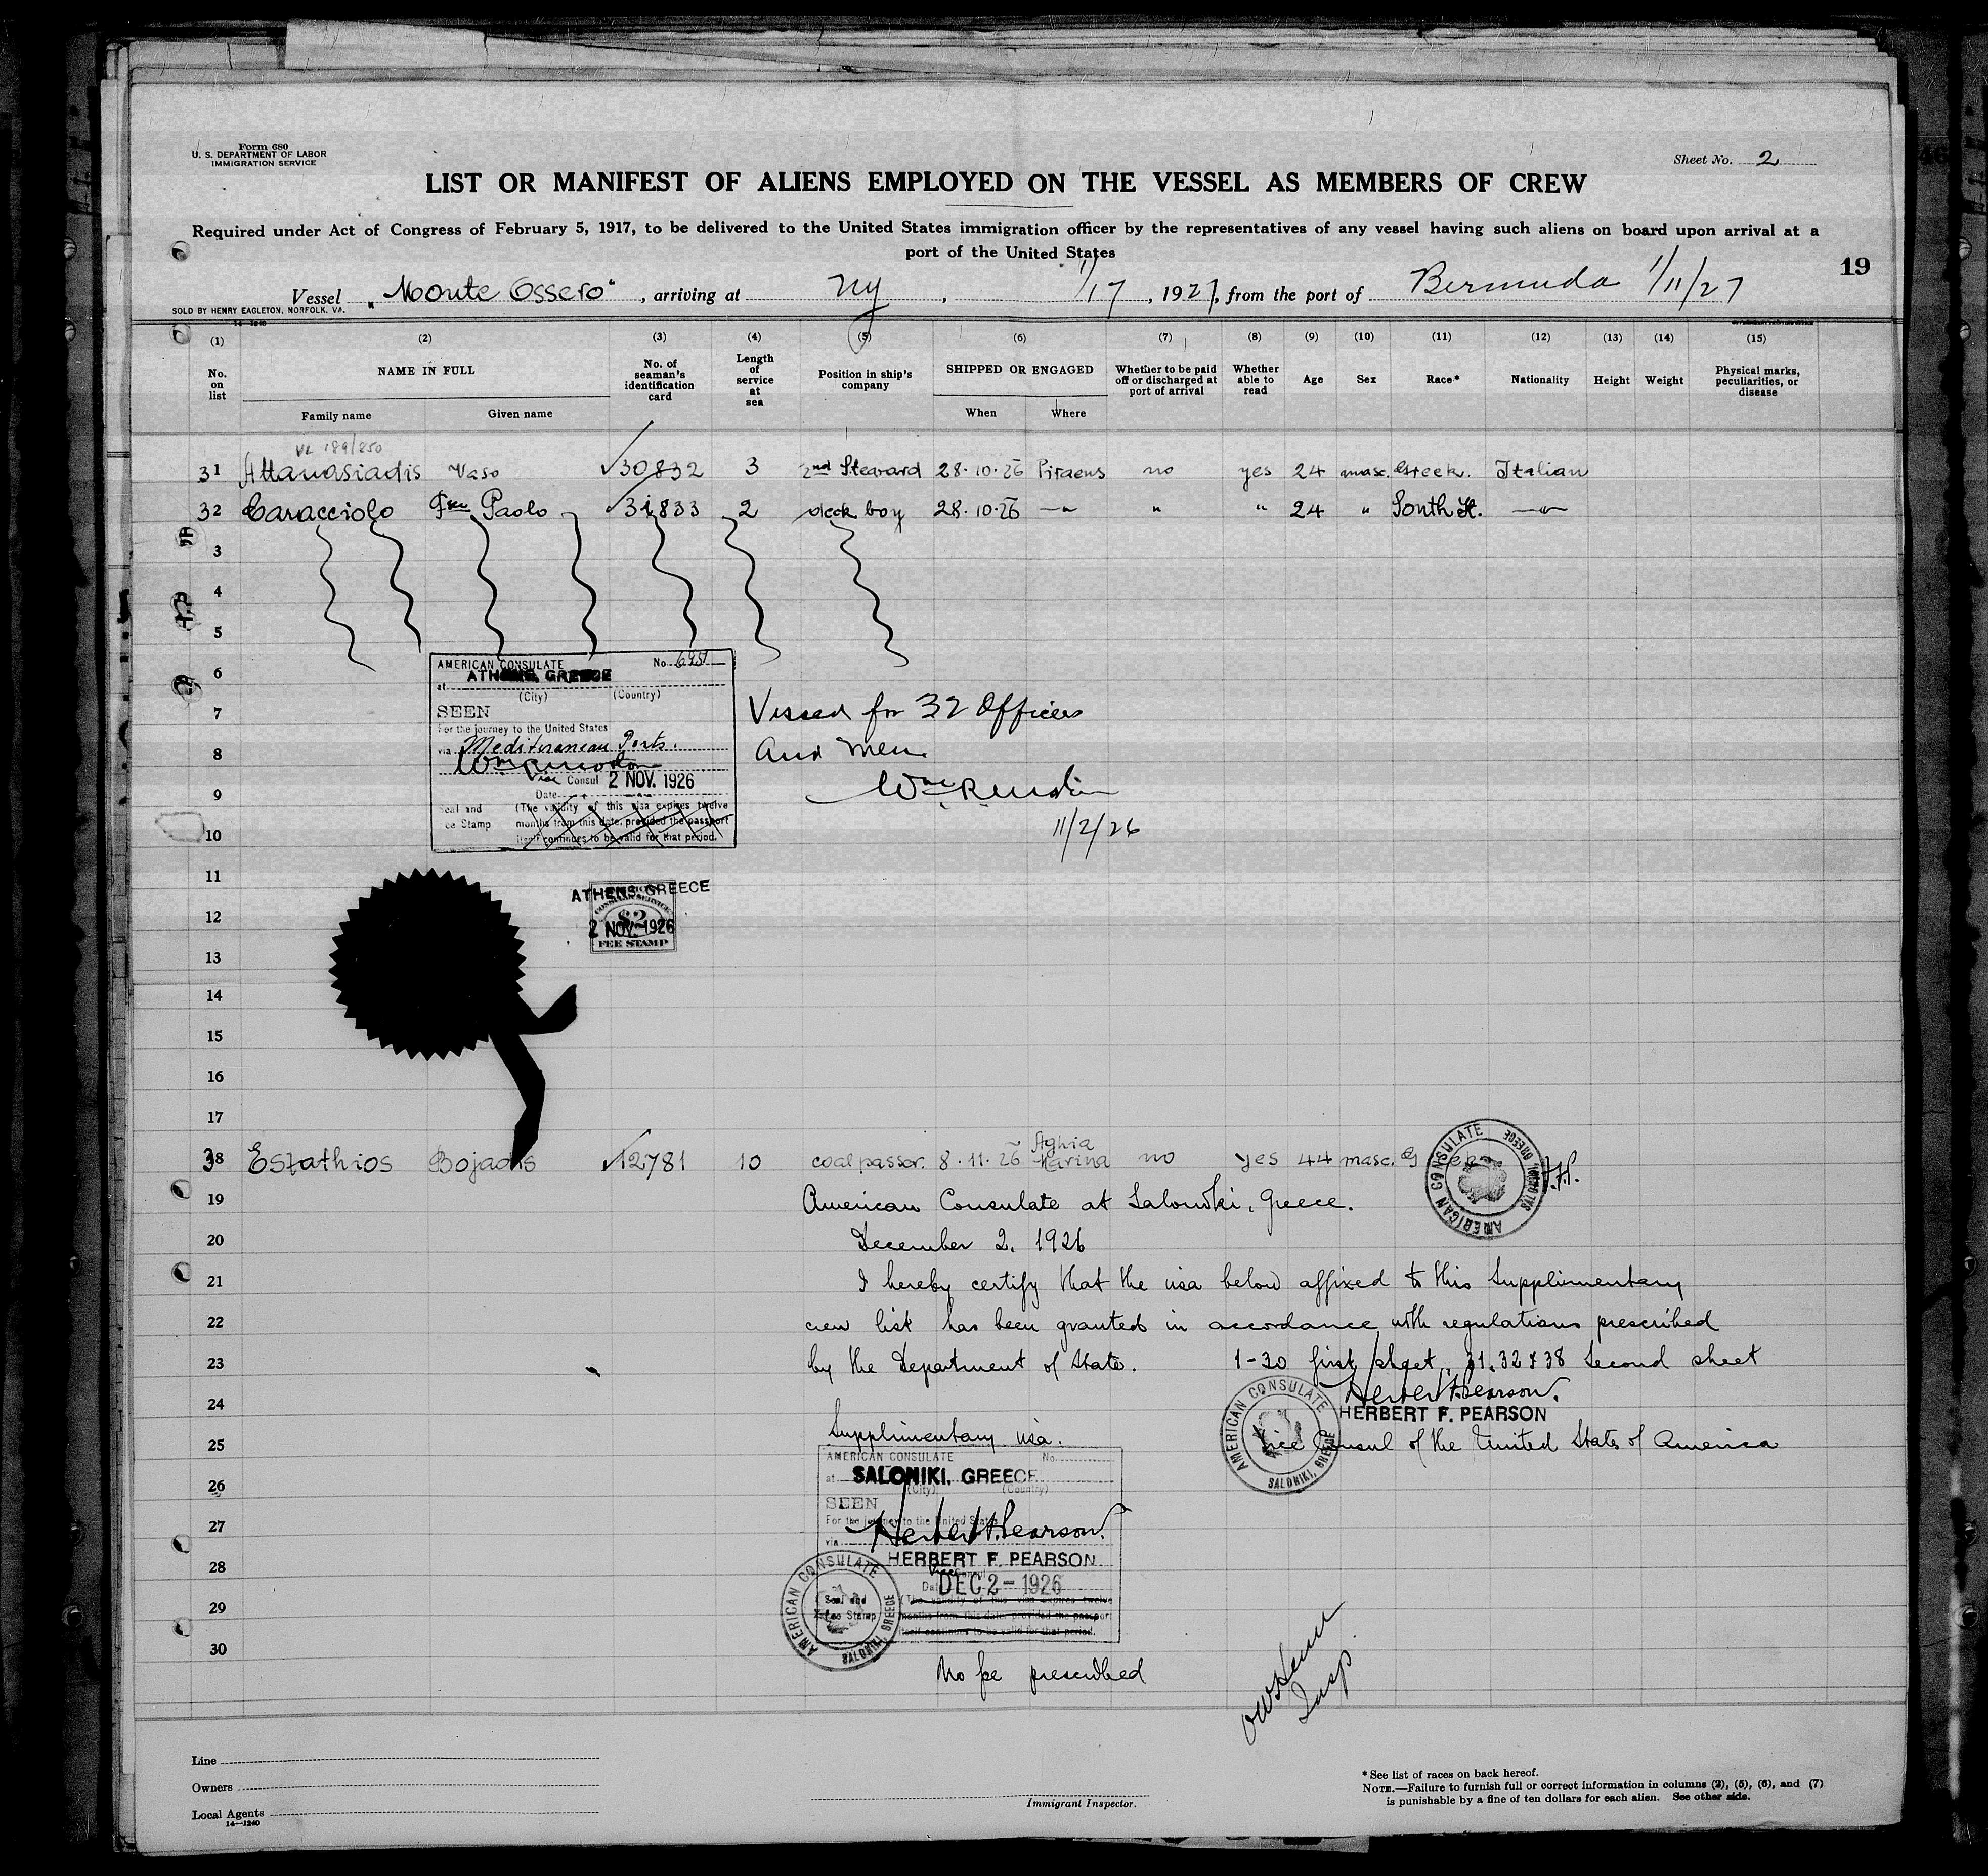 Form 680
U. S. DEPARTMENT OF LABOR
IMMIGRATION SERVICE
Sheet No. 2
LIST OR MANIFEST OF ALIENS EMPLOYED ON THE VESSEL AS MEMBERS OF CREW
Required under Act of Congress of February 5, 1917, to be delivered to the United States immigration officer by the representatives of any vessel having such aliens on board upon arrival at a
port of the United States
19
Vessel „Monte Ossero“, arriving at Ny, 1/17, 1927, from the port of Bermuda 1/11/27
SOLD BY HENRY EAGLETON, NORFOLK, VA.
(1) (2) (3) (4) (5) (6) (7) (8) (9) (10) (11) (12) (13) (14) (15)
No. on list
NAME IN FULL
Family name Given name
No. of seaman's identification card
Length of service at sea
Position in ship's company
SHIPPED OR ENGAGED
When Where
Whether to be paid off or discharged at port of arrival
Whether able to read
Age
Sex
Race*
Nationality
Height
Weight
Physical marks, peculiarities, or disease
31 Attanasiadis Vaso 30832 3 2nd Steward 28·10·26 Piraeus no yes 24 masc. Greek. Italian
32 Caracciolo Paolo 31833 2 deck boy 28·10·26 —"— " " 24 " South It. —"—
3
4
5
6
7
8
9
10
AMERICAN CONSULATE No.
at ATHENS, GREECE
(City) (Country)
SEEN
For the journey to the United States
via Mediterranean Ports.
Vice Consul 2 NOV. 1926
Date
Seal and Fee Stamp
(The validity of this visa expires twelve
months from this date, provided the passport
itself continues to be valid for that period.
Visaed for 32 Officers
and men
11/2/26
11
12
13
14
15
16
17
ATHENS, GREECE
CONSULAR SERVICE
$2
2 NOV. 1926
FEE STAMP
38 Estathios Bojadis 12781 10 coal passor. 8·11·26 Aghia Marina no yes 44 masc.
AMERICAN CONSULATE
SALONIKI, GREECE
19 American Consulate at Saloniki, Greece.
20 December 2, 1926
21 I hereby certify that the visa below affixed to this Supplimentary
22 crew list has been granted in accordance with regulations prescribed
23 by the Department of State. 1-30 first sheet, 31, 32 & 38 Second sheet
24 Herbert F. Pearson.
HERBERT F. PEARSON
25 Vice Consul of the United States of America
AMERICAN CONSULATE
SALONIKI, GREECE
Supplimentary visa.
AMERICAN CONSULATE No.
26 at SALONIKI, GREECE
(City) (Country)
SEEN
27 For the journey to the United States
via
Herbert F. Pearson.
28 HERBERT F. PEARSON
Vice Consul
Date DEC 2 - 1926
29 Seal and Fee Stamp
(The validity of this visa expires twelve
months from this date, provided the passport
itself continues to be valid for that period.
AMERICAN CONSULATE
SALONIKI, GREECE
30
No fee prescribed
Insp.
Line
Owners
Local Agents
14—1240
Immigrant Inspector.
* See list of races on back hereof.
NOTE.—Failure to furnish full or correct information in columns (2), (5), (6), and (7)
is punishable by a fine of ten dollars for each alien. See other side.